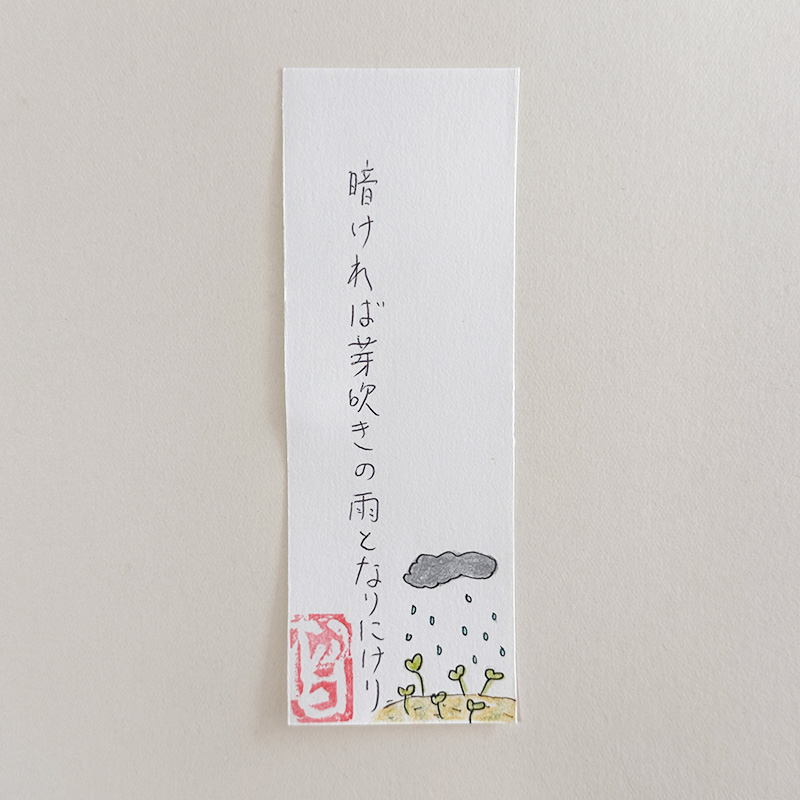 暗ければ芽吹きの雨となりにけり